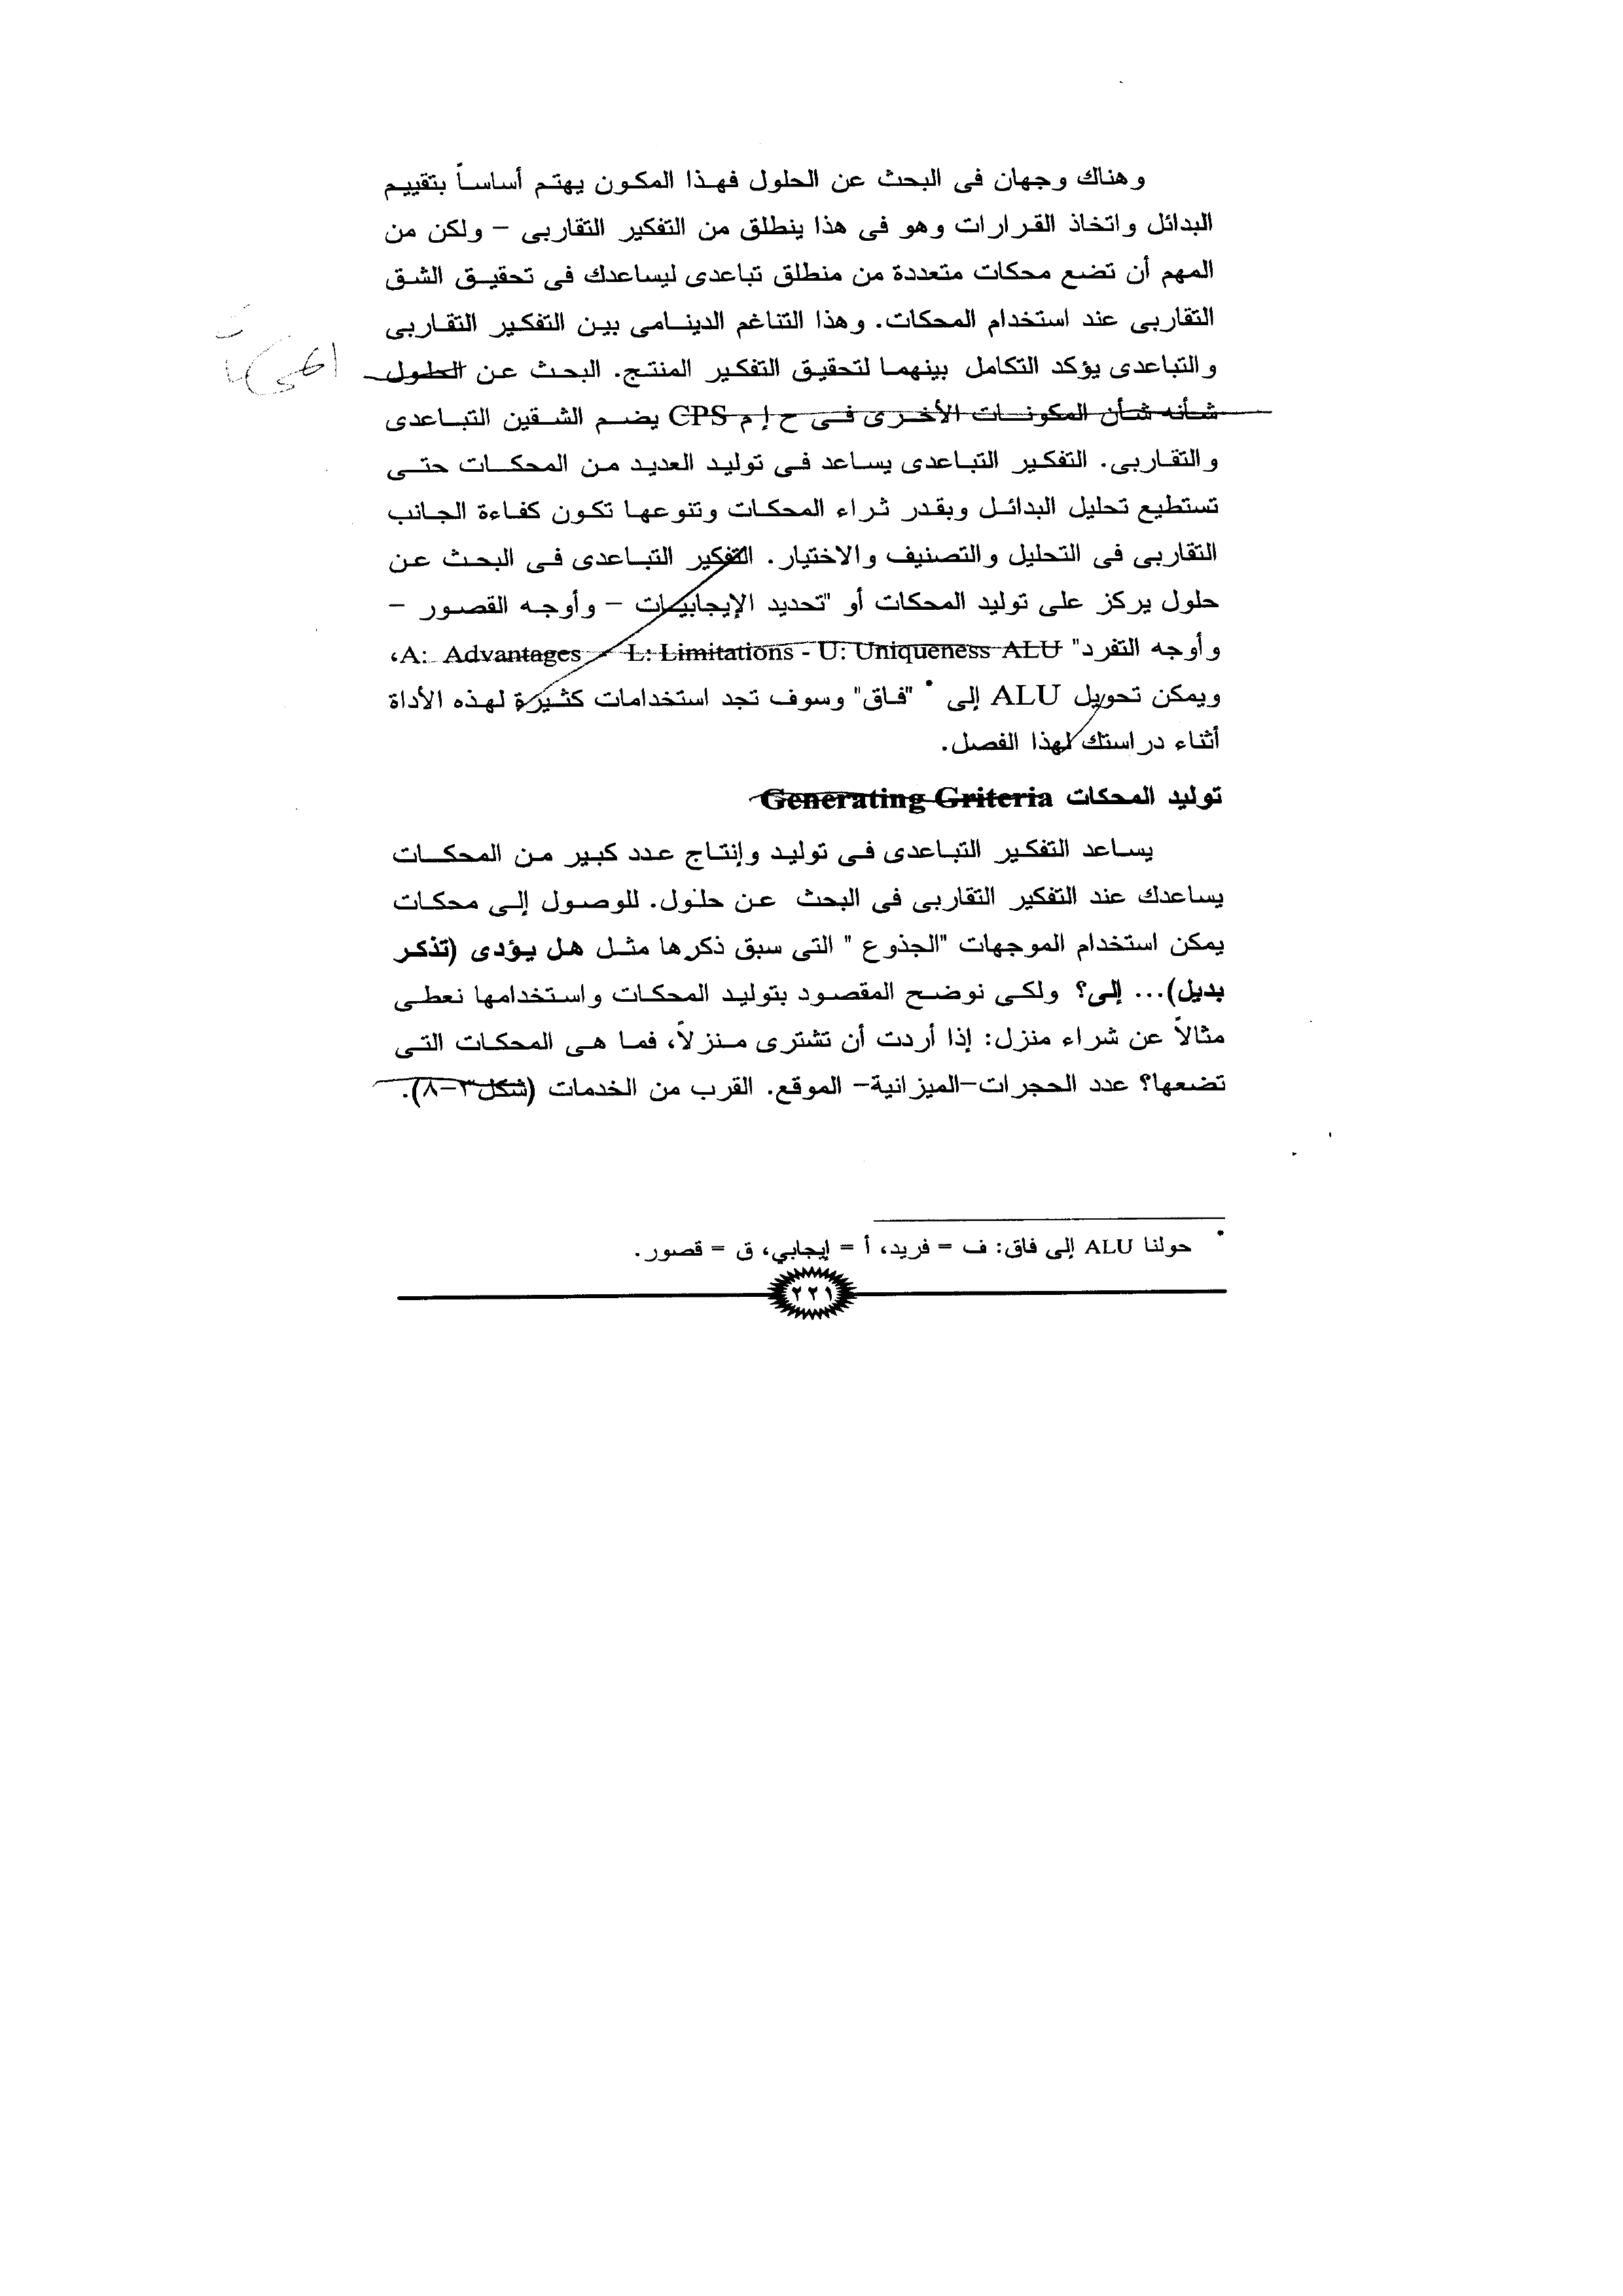 وهناك وجهان فى البحث عن الحلول فهذا المكون يهتم أساساً بتقييم
البدائل واتخاذ القرارات وهو فى هذا ينطلق من التفكير التقاربى – ولكن من
المهم أن تضع محكات متعددة من منطلق تباعدى ليساعدك فى تحقيق الشق
التقاربى عند استخدام المحكات. وهذا التناغم الدينامى بين التفكير التقاربى
والتباعدى يؤكد التكامل بينهما لتحقيق التفكير المنتج. البحث عن الحلول
شأنه شأن المكونات الأخرى فى ح إ م CPS يضم الشقين التباعدى
والتقاربى. التفكير التباعدى يساعد فى توليد العديد من المحكات حتى
تستطيع تحليل البدائل وبقدر ثراء المحكات وتنوعها تكون كفاءة الجانب
التقاربى فى التحليل والتصنيف والاختيار. التفكير التباعدى فى البحث عن
حلول يركز على توليد المحكات أو "تحديد الإيجابيات – وأوجه القصور –
وأوجه التفرد" A: Advantages - L: Limitations - U: Uniqueness ALU،
ويمكن تحويل ALU إلى • "فاق" وسوف تجد استخدامات كثيرة لهذه الأداة
أثناء دراستك لهذا الفصل.
توليد المحكات Generating Griteria
يساعد التفكير التباعدى فى توليد وإنتاج عدد كبير من المحكات
يساعدك عند التفكير التقاربى فى البحث عن حلول. للوصول إلى محكات
يمكن استخدام الموجهات "الجذوع " التى سبق ذكرها مثل هل يؤدى (تذكر
بديل)... إلى؟ ولكى نوضح المقصود بتوليد المحكات واستخدامها نعطى
مثالاً عن شراء منزل: إذا أردت أن تشترى منزلاً، فما هى المحكات التى
تضعها؟ عدد الحجرات–الميزانية– الموقع. القرب من الخدمات (شكل ٣–٨).
• حولنا ALU إلى فاق: ف = فريد، أ = إيجابي، ق = قصور.
٢٢١